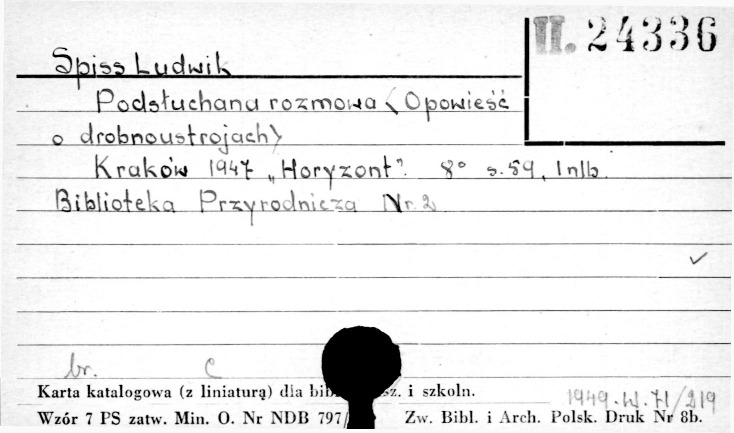 II. 24336
Spiss Ludwik
Podsłuchana rozmowa (Opowieść
o drobnoustrojach)
Kraków 1947 „Horyzont". 8° s. 59, 1 nlb.
Biblioteka Przyrodnicza Nr. 2
br. C
Karta katalogowa (z liniaturą) dla sz. i szkoln.
1949.W.71/219
Wzór 7 PS zatw. Min. O. Nr NDB 797/ Zw. Bibl. i Arch. Polsk. Druk Nr 8b.